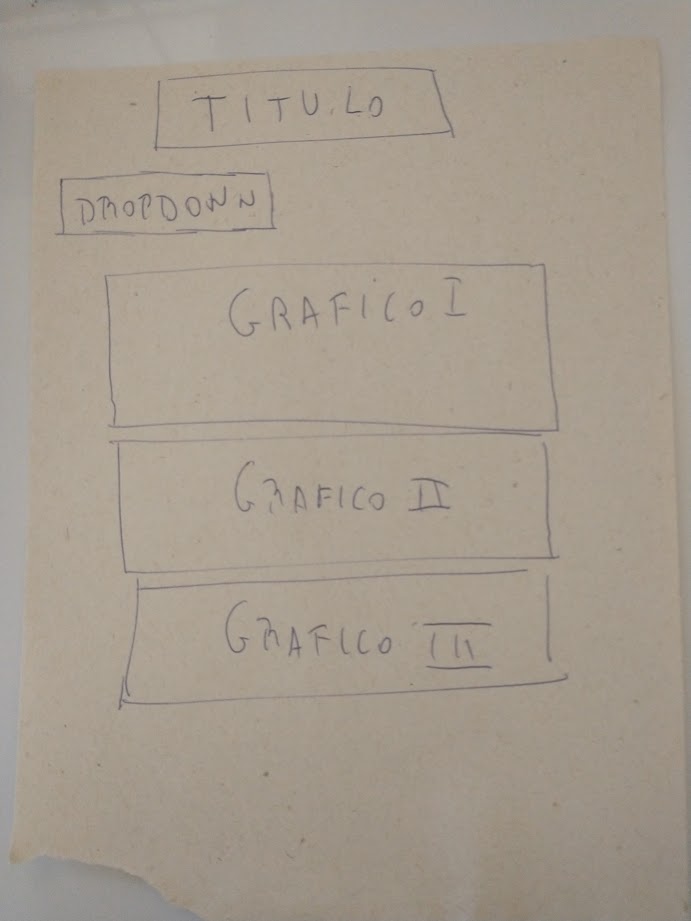 TITULO
DROPDOWN
GRAFICO I
GRAFICO II
GRAFICO III